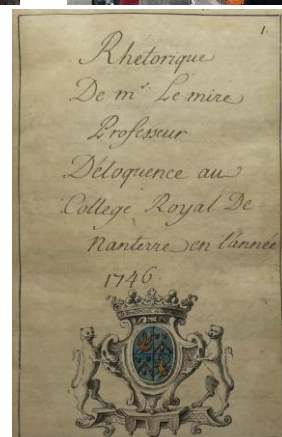 1.
Rhetorique
De mr. Le mire
Professeur
Déloquence au
College Royal De
Nanterre en l'année
1746.